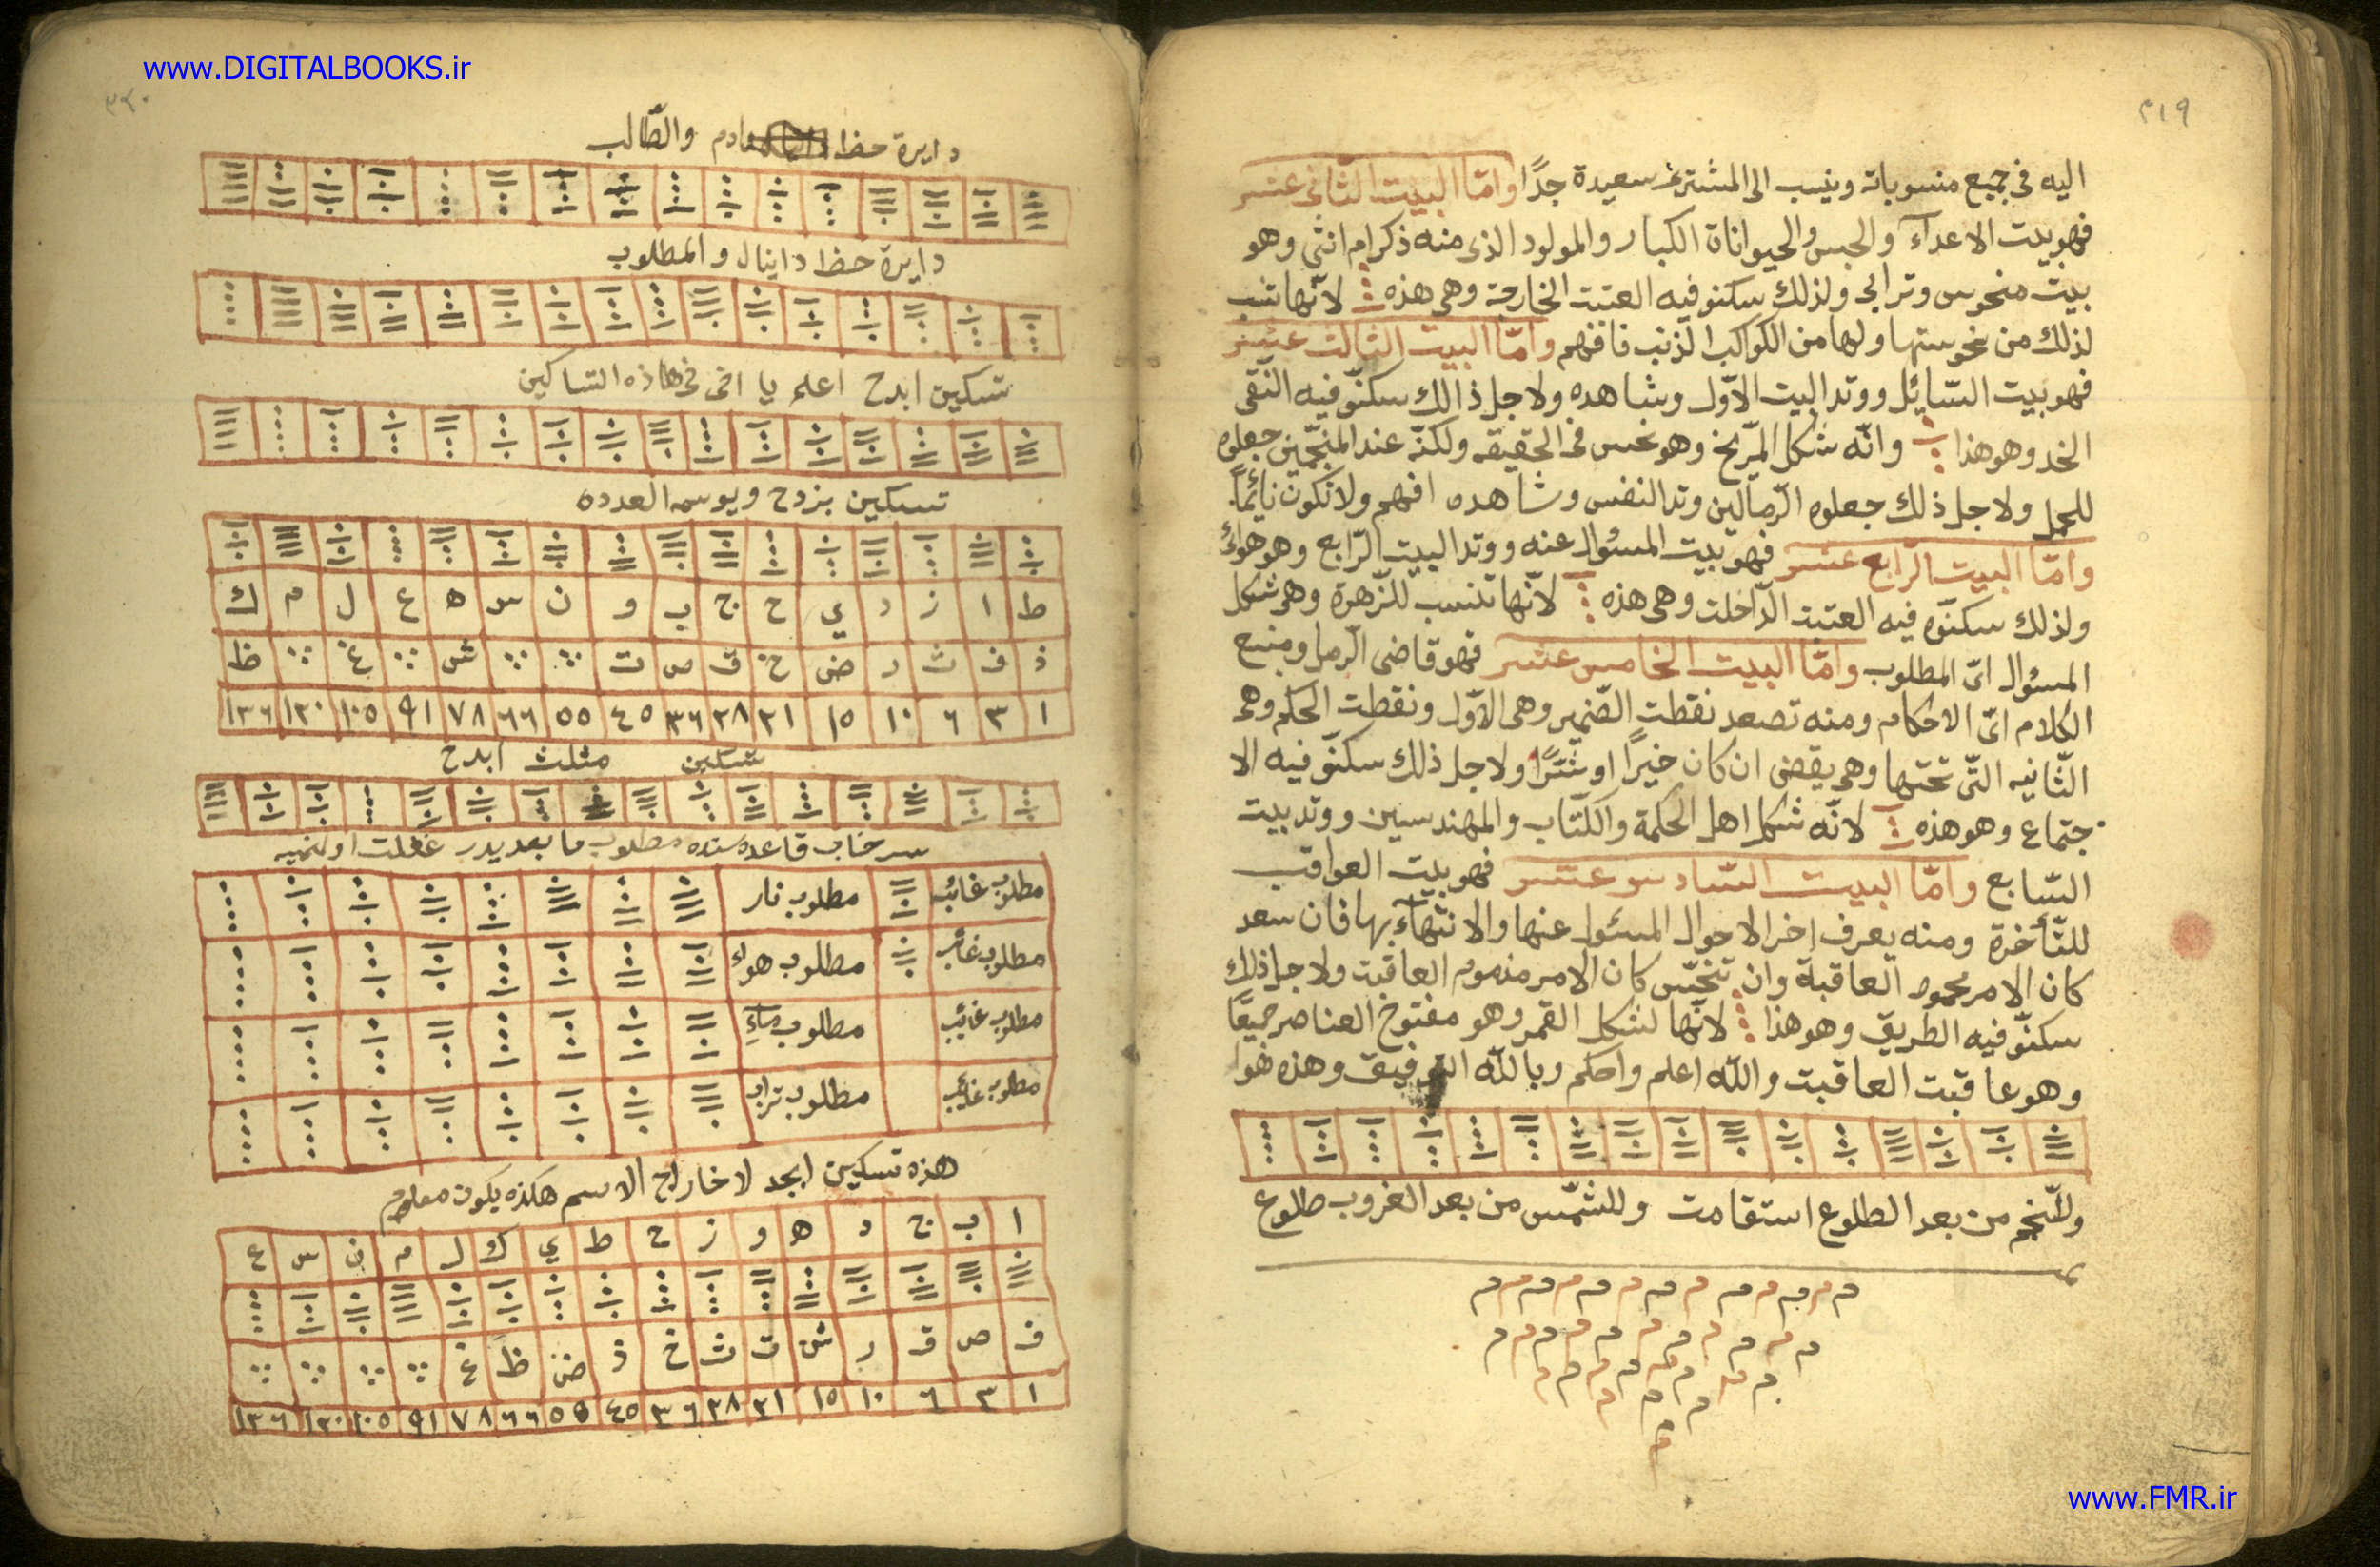 www.DIGITALBOOKS.ir
٣١٩
اليه فى جميع منسوباته وينسب الى المشترى سعيدة جدًا وامّا البيت الثانى عشر
فهو بيت الاعدآء والحبس والحيوانات الكبار والمولود الذى منه ذكر ام انثى وهو
بيت منحوس وترابى ولذلك سكنو فيه العتبت الخارجة وهى هذه لانّها تنسب
لذلك من نحوستها ولها من الكواكب الذنب فافهم وامّا البيت الثالث عشر
فهو بيت السّائل ووتد البيت الاوّل وشاهده ولاجل ذالك سكنّو فيه النّقى
الخد وهو هذا وانّه شكل المرّيخ وهو نحس فى الحقيقه ولكنّه عند المنجّمين جعلوه
للحمل ولاجل ذلك جعلوه الرّمالين وتد النفس وشاهده افهم ولا تكون نائماً
وامّا البيت الرّابع عشر فهو بيت المسئوال عنه ووتد البيت الرّابع وهو هوائ
ولذلك سكنّوه فيه العتبت الدّاخلت وهى هذه لانّها تنسب للزّهرة وهى شكل
المسئوال اىّ المطلوب وامّا البيت الخامس عشر فهو قاضى الرّمل ومنبع
الكلام اىّ الاحكام ومنه تصعد نقطت الضّمير وهى الاوّل ونقطت الحكم وهى
الثّانيه التّى تحتها وهى يقضى ان كان خيرًا او شرًّا ولاجل ذلك سكنّو فيه الا
جتماع وهو هذه لانّه شكل اهل الحكمة والكتّاب والمهندسين ووتد بيت
السّابع وامّا البيت السّادس عشر فهو بيت العواقب
للتّأخرة ومنه يعرف اخر الاحوال المسئول عنها والانتهآء بها فان سعد
كان الامر محمود العاقبة وان تنحّس كان الامر مذموم العاقبت ولاجل ذلك
سكنّو فيه الطريق وهو هذا لانّها لشكل القمر وهو مفتوح العناصر جميعًا
وهو عاقبت العاقبت والله اعلم واحكم وبالله التوفيق وهذه هوا
وللنّجم من بعد الطلوع استقامت وللشّمس من بعد الغروب طلوع
م م م م م م م م م م م م م
م م م م م م م م م م م
م م م م م م م م
م م م
م
www.FMR.ir
٣٢٠
دايرة حظ ادم والطّالب
دايرة حظ داينال والمطلوب
تسكين ابدح اعلم يا اخى فى هاذه التساكين
تسكين بزدح ويوسمه العدده
ط ا ز د ي ح ج ب و ن س ه ع ل م ك
ذ ف ث ر ض خ ق ص ت ش غ ظ
١ ٣ ٦ ١٠ ١٥ ٢١ ٢٨ ٣٦ ٤٥ ٥٥ ٦٦ ٧٨ ٩١ ١٠٥ ١٢٠ ١٣٦
تسكين مثلث ابدح
سرخاب قاعده سنده مطلوب ما بعديدر غفلت اولنميه
مطلوب غائب مطلوب نار
مطلوب غائب مطلوب هواء
مطلوب غائب مطلوب ماء
مطلوب غائب مطلوب تراب
هذه تسكين ابجد لاخاراج الاسم هكذه يكون معلوم
ا ب ج د ه و ز ح ط ي ك ل م ن س ع
ف ص ق ر ش ت ث خ ذ ض ظ غ
١ ٣ ٦ ١٠ ١٥ ٢١ ٢٨ ٣٦ ٤٥ ٥٥ ٦٦ ٧٨ ٩١ ١٠٥ ١٢٠ ١٣٦